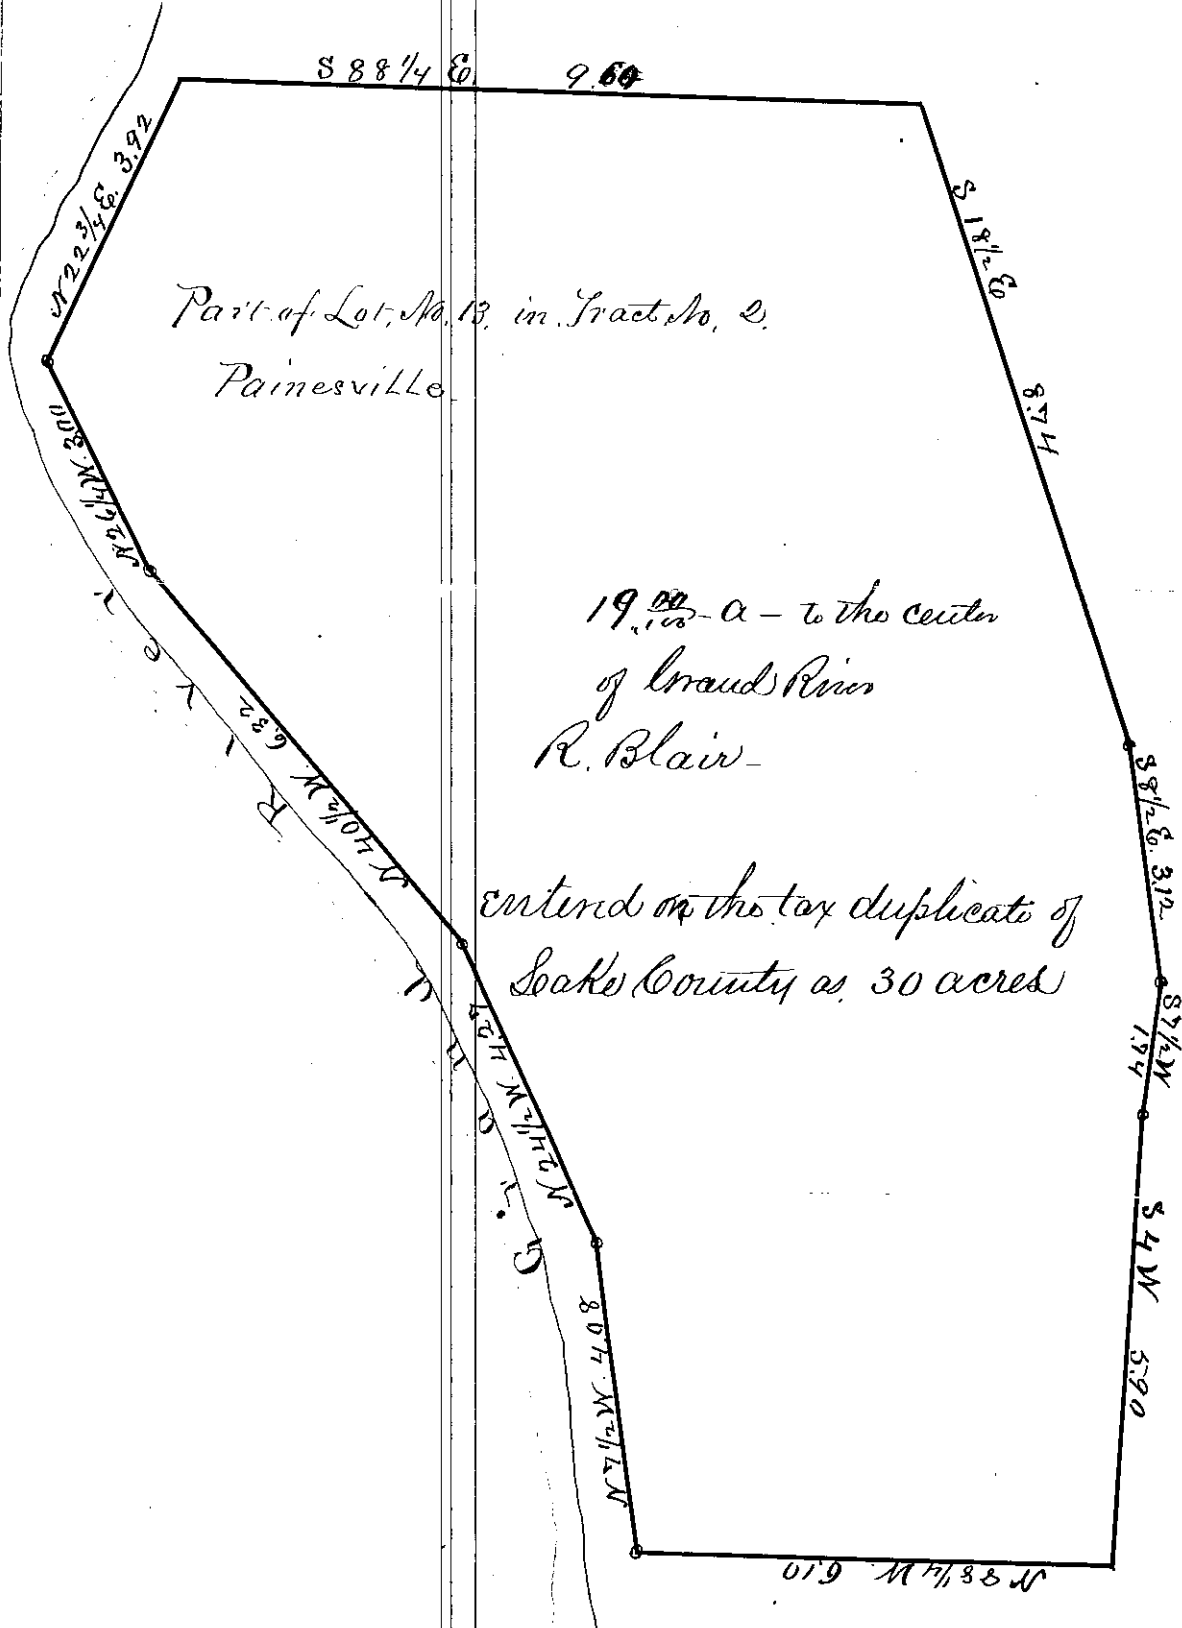 S 88 1/4 E 9.60
N 22 3/4 E. 3.92
S 18 1/2 E 8.74
Part of Lot. No. 13. in Tract No. 2.
Painesville
N 26 1/4 W. 3.00
19 00/100 - a - to the center
of Grand River
R. Blair -
N 40 1/2 W. 6.32
S 8 1/2 E. 3.12
enterd on the tax duplicate of
Lake County as 30 acres
S 7 1/2 W 1.74
N 24 1/2 W 4.27
Grand River
S 4 W 5.90
N 7 1/2 W. 4.08
N 88 1/4 W. 6.10